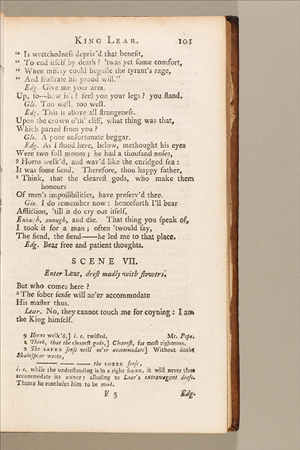 KING LEAR. 101
“ Is wretchedness depriv'd that benefit,
“ To end itself by death? 'twas yet some comfort,
“ When misery could beguile the tyrant's rage,
“ And frustrate his proud will.”
Edg. Give me your arm.
Up, so—how is't? feel you your legs? you stand.
Glo. Too well, too well.
Edg. This is above all strangeness.
Upon the crown o'th' cliff, what thing was that,
Which parted from you?
Glo. A poor unfortunate beggar.
Edg. As I stood here, below, methought his eyes
Were two full moons; he had a thousand noses,
9 Horns welk'd, and wav'd like the enridged sea:
It was some fiend. Therefore, thou happy father,
1 Think, that the clearest gods, who make them
honours
Of men's impossibilities, have preserv'd thee.
Glo. I do remember now: henceforth I'll bear
Affliction, 'till it do cry out itself,
Enough, enough, and die. That thing you speak of,
I took it for a man; often 'twould say,
The fiend, the fiend——he led me to that place.
Edg. Bear free and patient thoughts.
SCENE VII.
Enter Lear, drest madly with flowers.
But who comes here?
2 The sober sense will ne'er accommodate
His master thus.
Lear. No, they cannot touch me for coyning: I am
the King himself.
9 Horns welk'd,] i. e. twisted. Mr. Pope.
1 Think, that the clearest gods,] Clearest, for most righteous.
2 The SAFER sense will ne'er accommodate] Without doubt
Shakespear wrote,
—— —— —— the SOBER sense,
i. e. while the understanding is in a right frame, it will never thus
accommodate its owner: alluding to Lear's extravagant dress.
Thence he concludes him to be mad.
F 3 Edg.